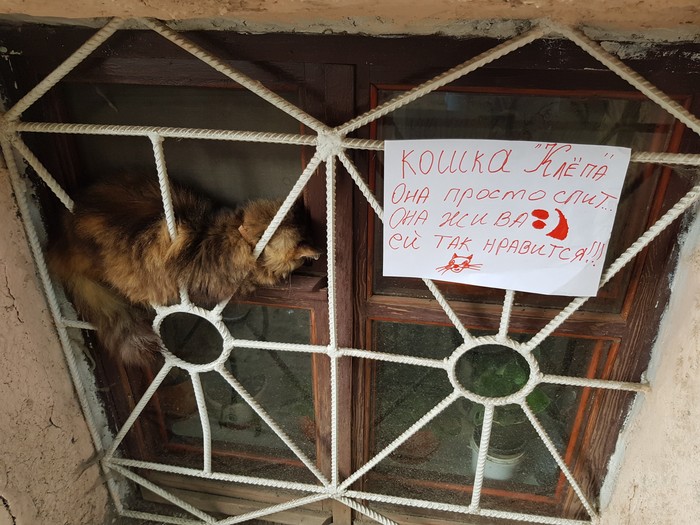 кошка "Клёпа"
Она просто спит...
Она жива :)
ей так нравится!!!